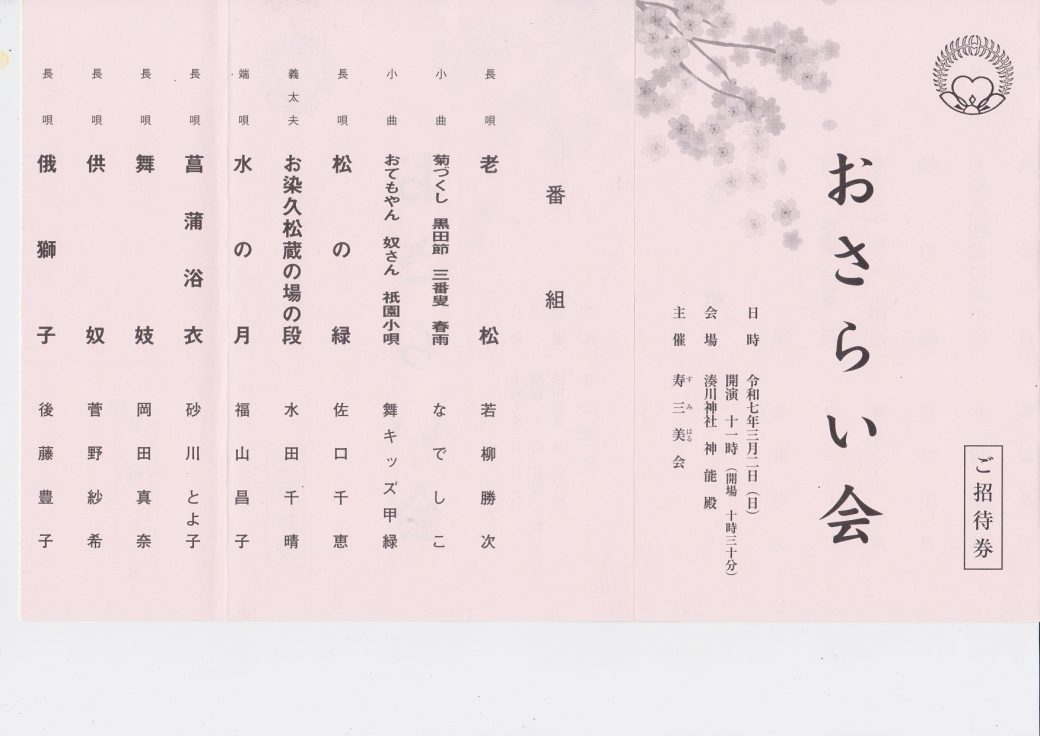 ご招待券
おさらい会
日時 令和七年三月二日（日）
開演 十一時（開場 十時三十分）
会場 湊川神社 神能殿
主催 寿三美会
すみはる
番組
長唄 老松 若柳勝次
小曲 菊づくし 黒田節 三番叟 春雨 なでしこ
小曲 おてもやん 奴さん 祇園小唄 舞キッズ甲緑
長唄 松の緑 佐口千恵
義太夫 お染久松蔵の場の段 水田千晴
端唄 水の月 福山昌子
長唄 菖蒲浴衣 砂川とよ子
長唄 舞妓 岡田真奈
長唄 供奴 菅野紗希
長唄 俄獅子 後藤豊子